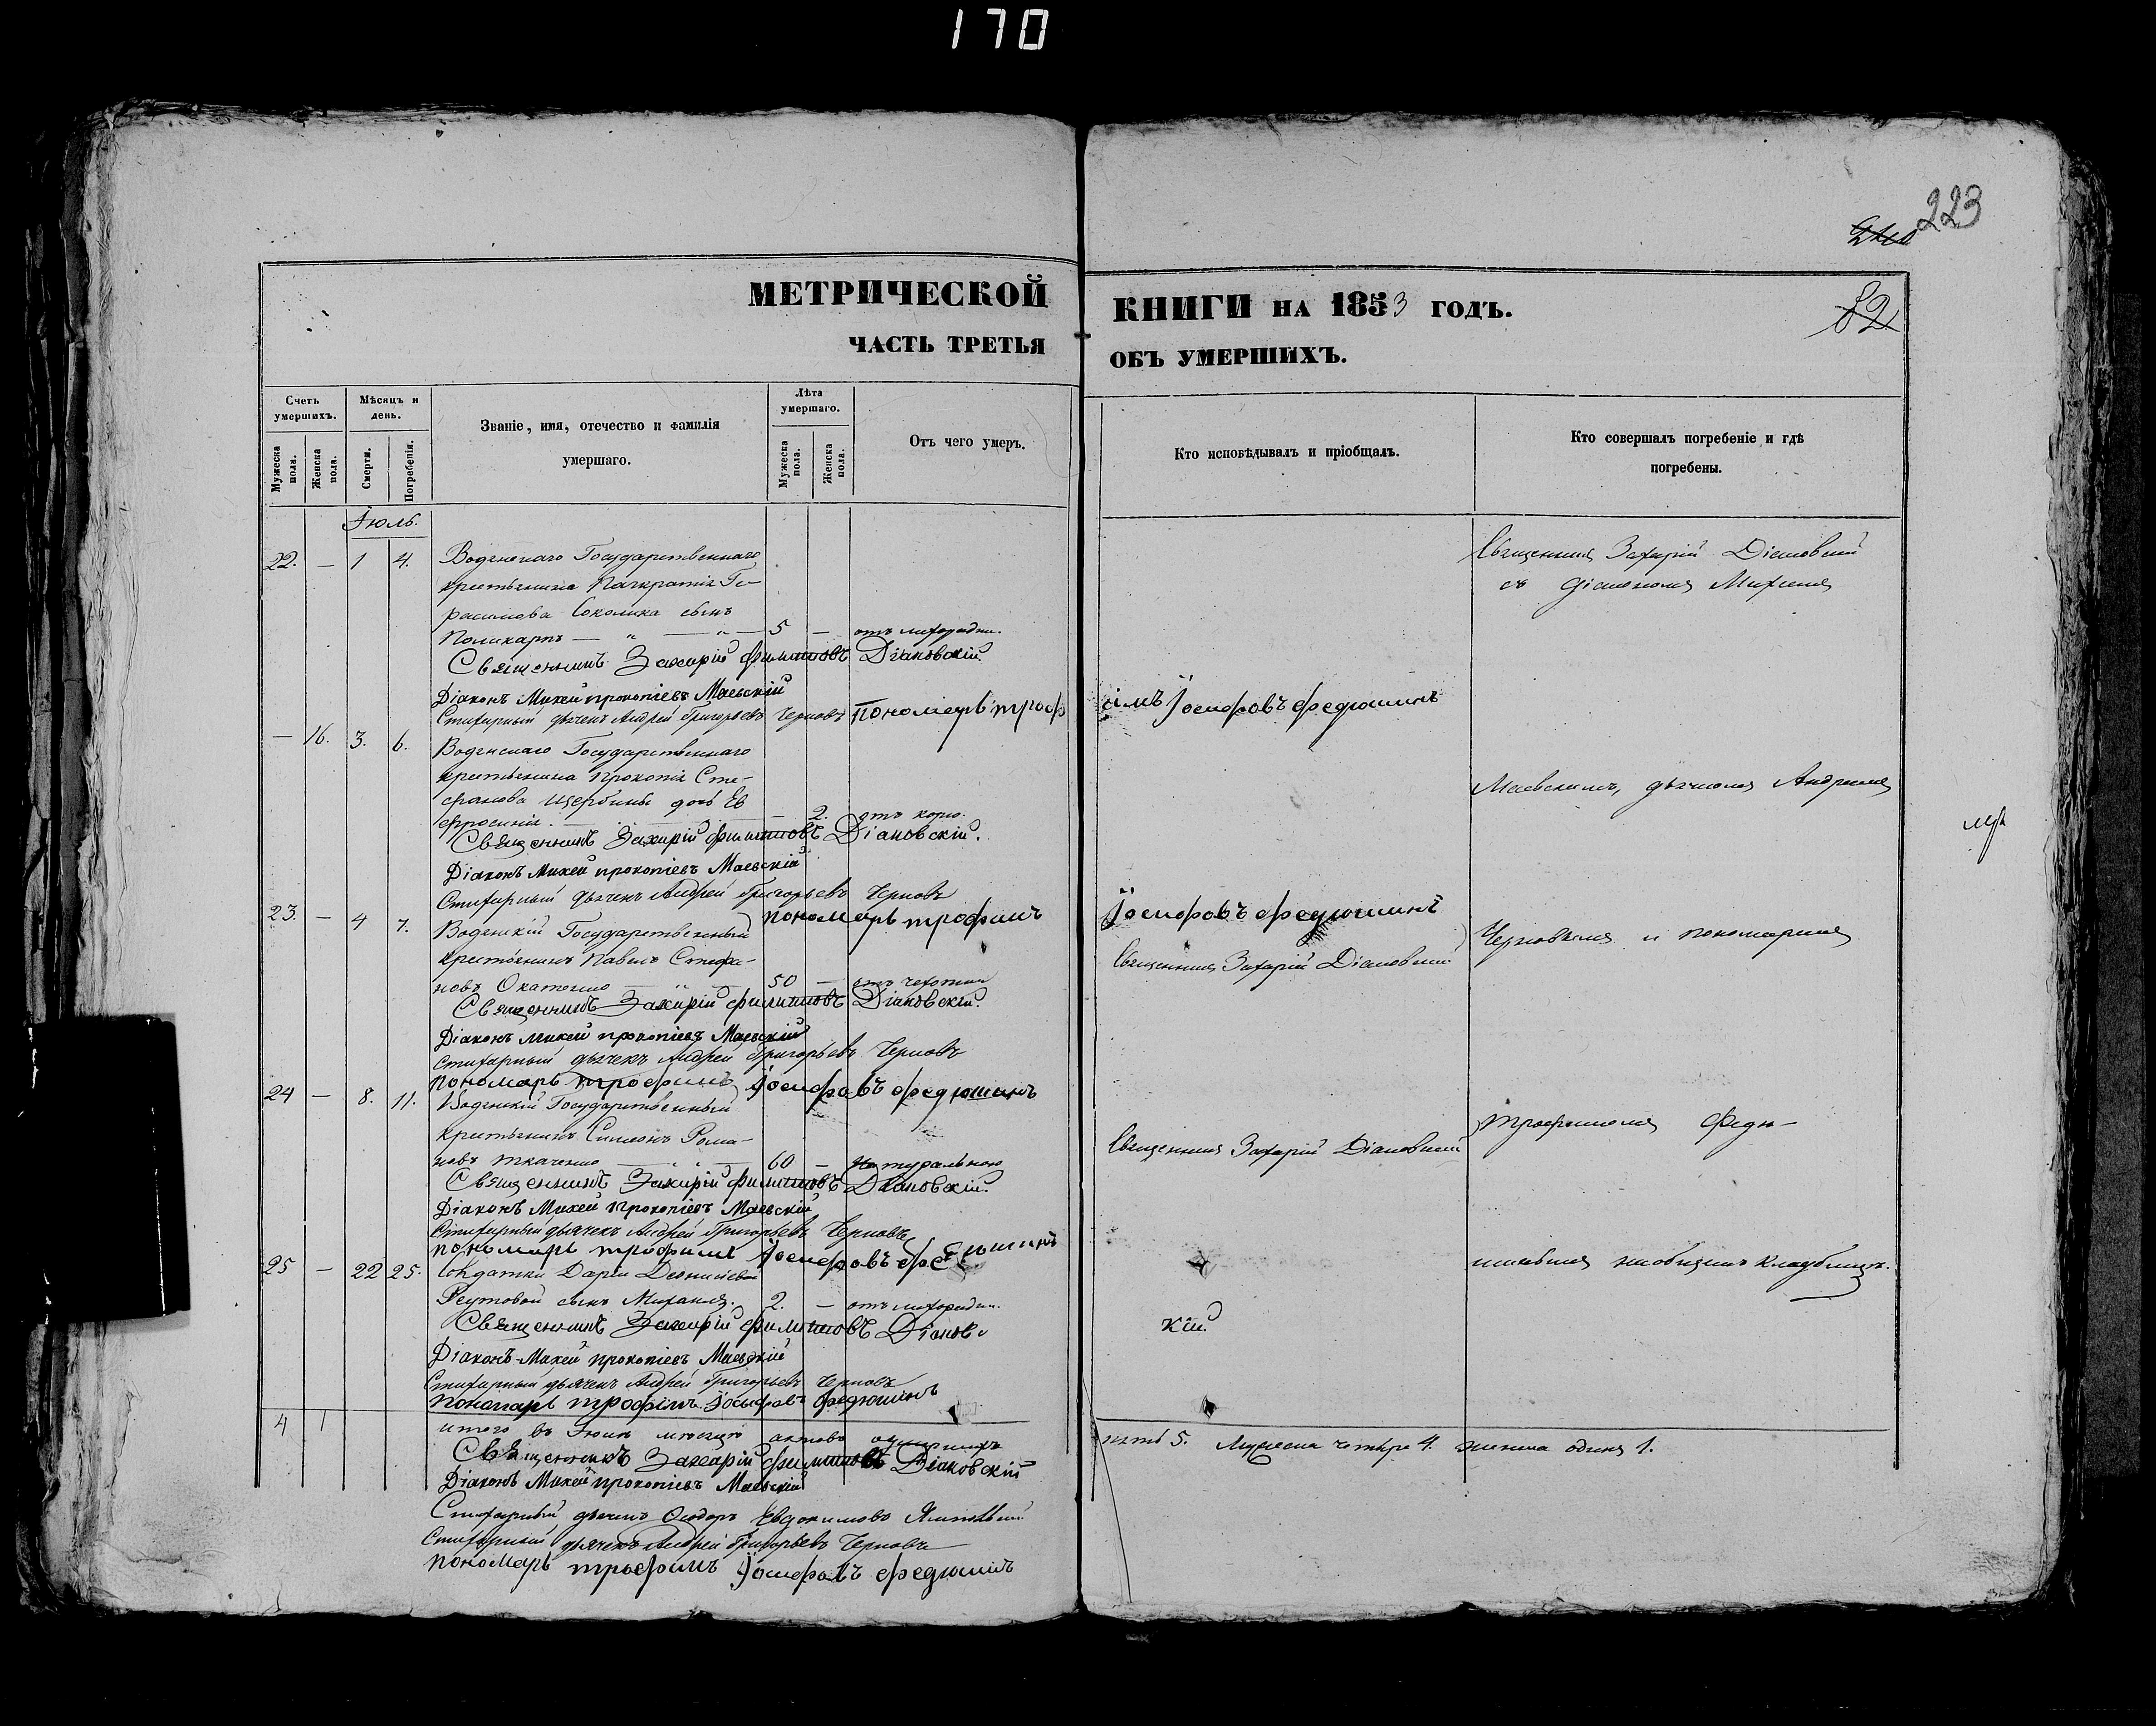 170
223
82
МЕТРИЧЕСКОЙ КНИГИ НА 1853 ГОДЪ.
ЧАСТЬ ТРЕТЬЯ ОБЪ УМЕРШИХЪ.
Счетъ умершихъ.
Мѣсяцъ и день.
Званіе, имя, отечество и фамилія умершаго.
Лѣта умершаго.
Отъ чего умеръ.
Кто исповѣдывалъ и пріобщалъ.
Кто совершалъ погребеніе и гдѣ погребены.
Мужеска пола.
Женска пола.
Смерти.
Погребенія.
Мужеска пола.
Женска пола.
Іюль.
22. — 1 4. Государственнаго
крестьянина Панкратія Ге-
расимова Соколика сынъ
Поликарпъ — " — " — 5 — отъ лихорадки.
Священникъ Захарій Филиповъ Діаковскій.
Діаконъ Михей Прокопіевъ Маевскій
Стихарный дьячекъ Андрей Григорьевъ Черновъ Пономарь Троф
имъ Іосифовъ Федюшинъ
Священникъ Захарій Діаковскій
съ Діакономъ Михеемъ
— 16. 3. 6. Государственнаго
крестьянина Прокопія Сте-
фанова Щербины дочь Ев
фросинія. — 2. отъ кори.
Священникъ Захарій Филиповъ Діаковскій.
Діаконъ Михей Прокопіевъ Маевскій
Стихарный дьячекъ Андрей Григорьевъ Черновъ
Пономарь Трофимъ Іосифовъ Федюшинъ
Маевскимъ, дьячкомъ Андреемъ
23. — 4 7. Государственный
крестьянинъ Павелъ Стефа-
новъ — 50 — отъ чахотки
Священникъ Захарій Діаковскій
Черновымъ и пономаремъ
Священникъ Захарій Филиповъ Діаковскій.
Діаконъ Михей Прокопіевъ Маевскій
Стихарный дьячекъ Андрей Григорьевъ Черновъ
Пономарь Трофимъ Іосифовъ Федюшинъ
24 — 8. 11. Государственный
крестьянинъ Симеонъ Рома-
новъ Ткаченко — " — 60 — Натуральною
Священникъ Захарій Діаковскій
Трофимомъ Федю-
Священникъ Захарій Филиповъ Діаковскій.
Діаконъ Михей Прокопіевъ Маевскій
Стихарный дьячекъ Андрей Григорьевъ Черновъ
Пономарь Трофимъ Іосифовъ Федюшинъ
25 — 22 25. Солдатки Даріи
Реутовой сынъ Михаилъ. 2. — отъ лихорадки.
шинымъ на общемъ кладбищѣ.
Священникъ Захарій Филиповъ Діаковс
кій.
Діаконъ Михей Прокопіевъ Маевскій
Стихарный дьячекъ Андрей Григорьевъ Черновъ
Пономарь Трофимъ Іосифовъ Федюшинъ
4 1 итого въ мѣсяцѣ умершихъ
пять 5. Мужеска четыре 4. женска одинъ 1.
Священникъ Захарій Филиповъ Діаковскій
Діаконъ Михей Прокопіевъ Маевскій
Стихарный дьячекъ Ѳеодоръ Евдокимовъ
Стихарный дьячекъ Андрей Григорьевъ Черновъ
Пономарь Трофимъ Іосифовъ Федюшинъ